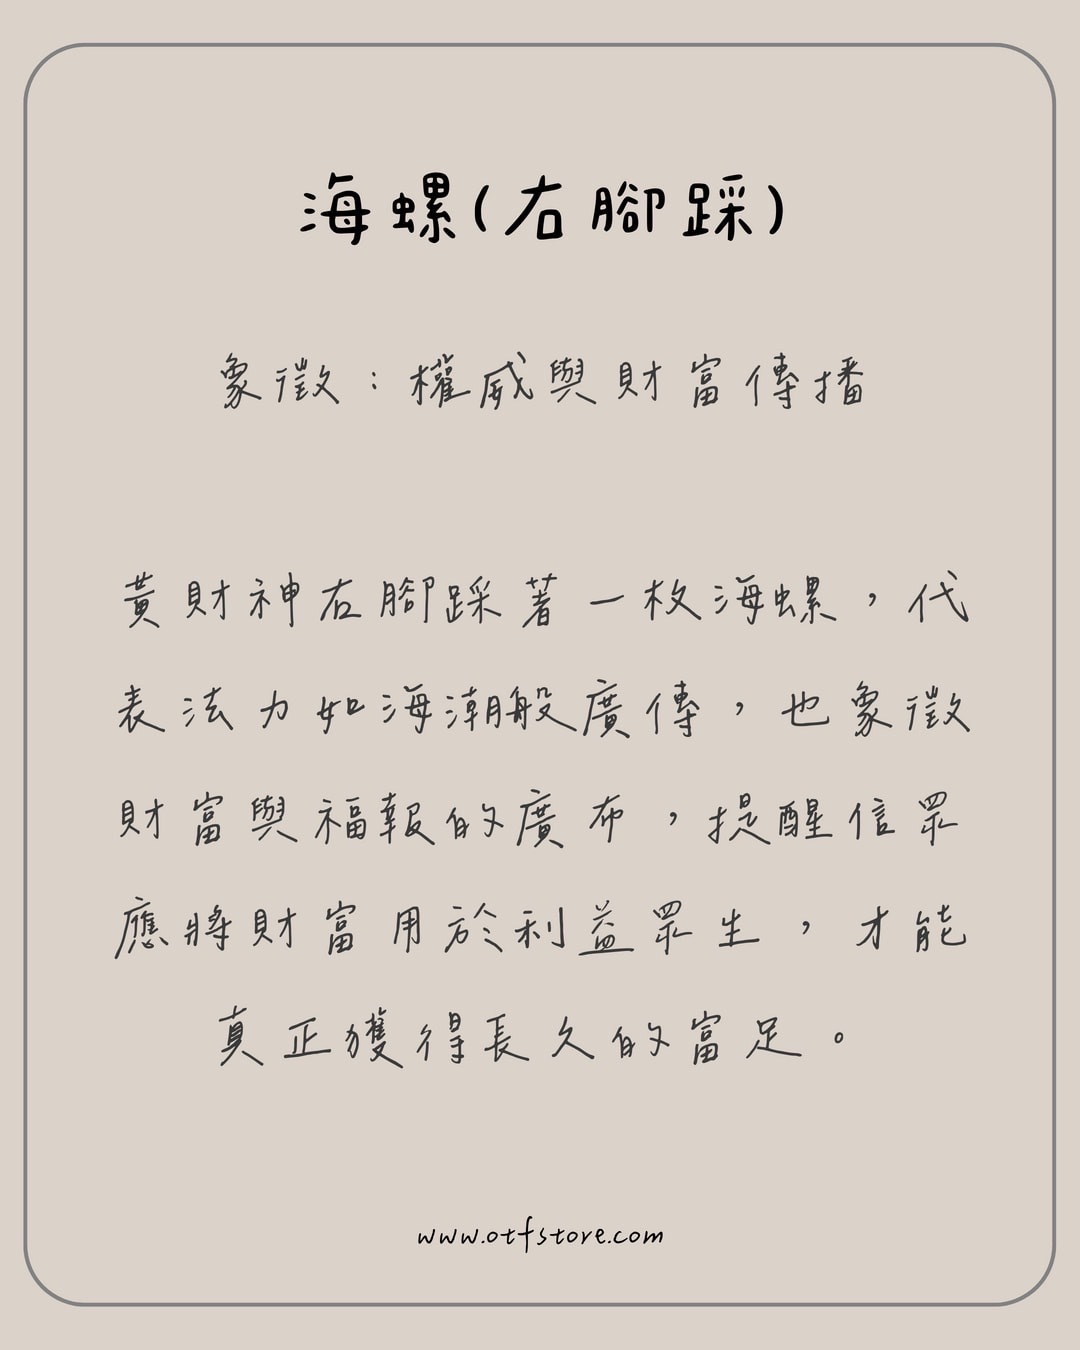 海螺(右腳踩)
象徵：權威與財富傳播
黃財神右腳踩著一枚海螺，代
表法力如海潮般廣傳，也象徵
財富與福報的廣布，提醒信眾
應將財富用於利益眾生，才能
真正獲得長久的富足。
www.otfstore.com